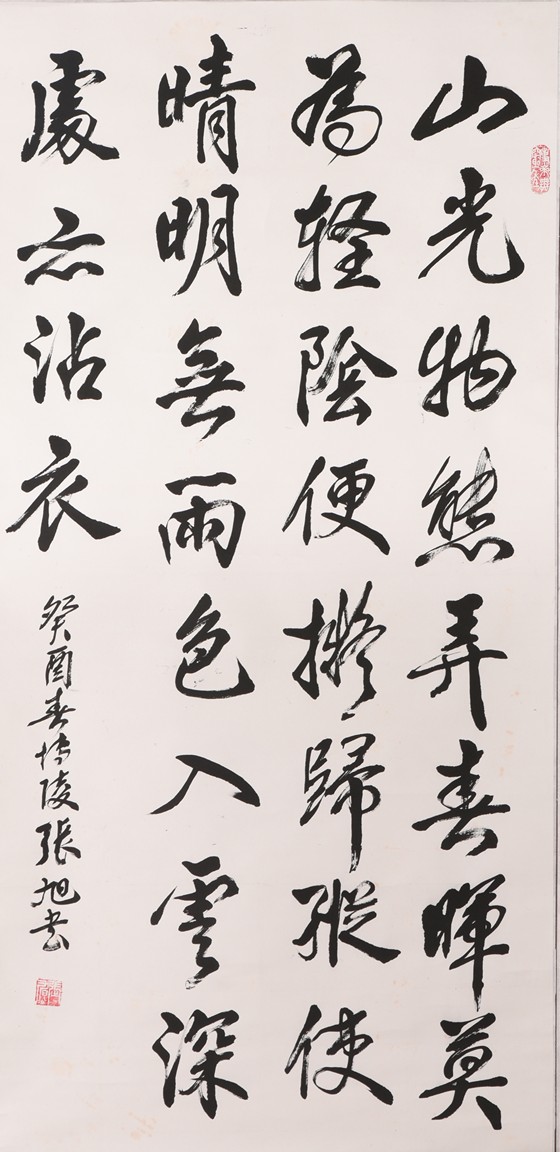 山光物態弄春暉莫
為輕陰便擬歸縱使
晴明無雨色入雲深
處亦沾衣
癸酉春博陵張旭书